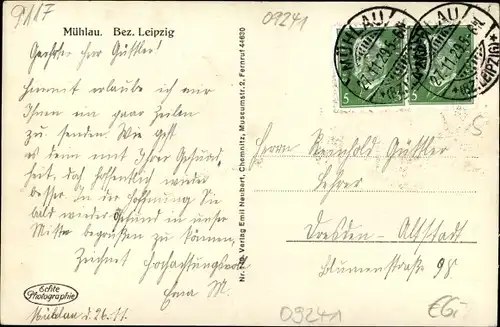 9117
09241
Mühlau. Bez. Leipzig
Geehrter Herr Güttler!
Hiermit erlaube ich mir
Ihnen ein paar Zeilen
zu senden. Wie geht
es denn mit Ihrer Gesund-
heit, doch hoffentlich wieder
besser. In der Hoffnung Sie
bald wieder gesund in unser
Mitte begrüßen zu können,
Zeichnet Hochachtungsvoll
Erna M.
Mühlau d. 26.11.
Echte
Photographie
Verlag Emil Neubert, Chemnitz, Museumstr. 2, Fernruf 44630
MÜHLAU
5
5
(BZ. LEIPZIG)
Herrn Reinhold Güttler
Lehrer
Dresden-Altstadt
Blumenstraße 98
5
09241